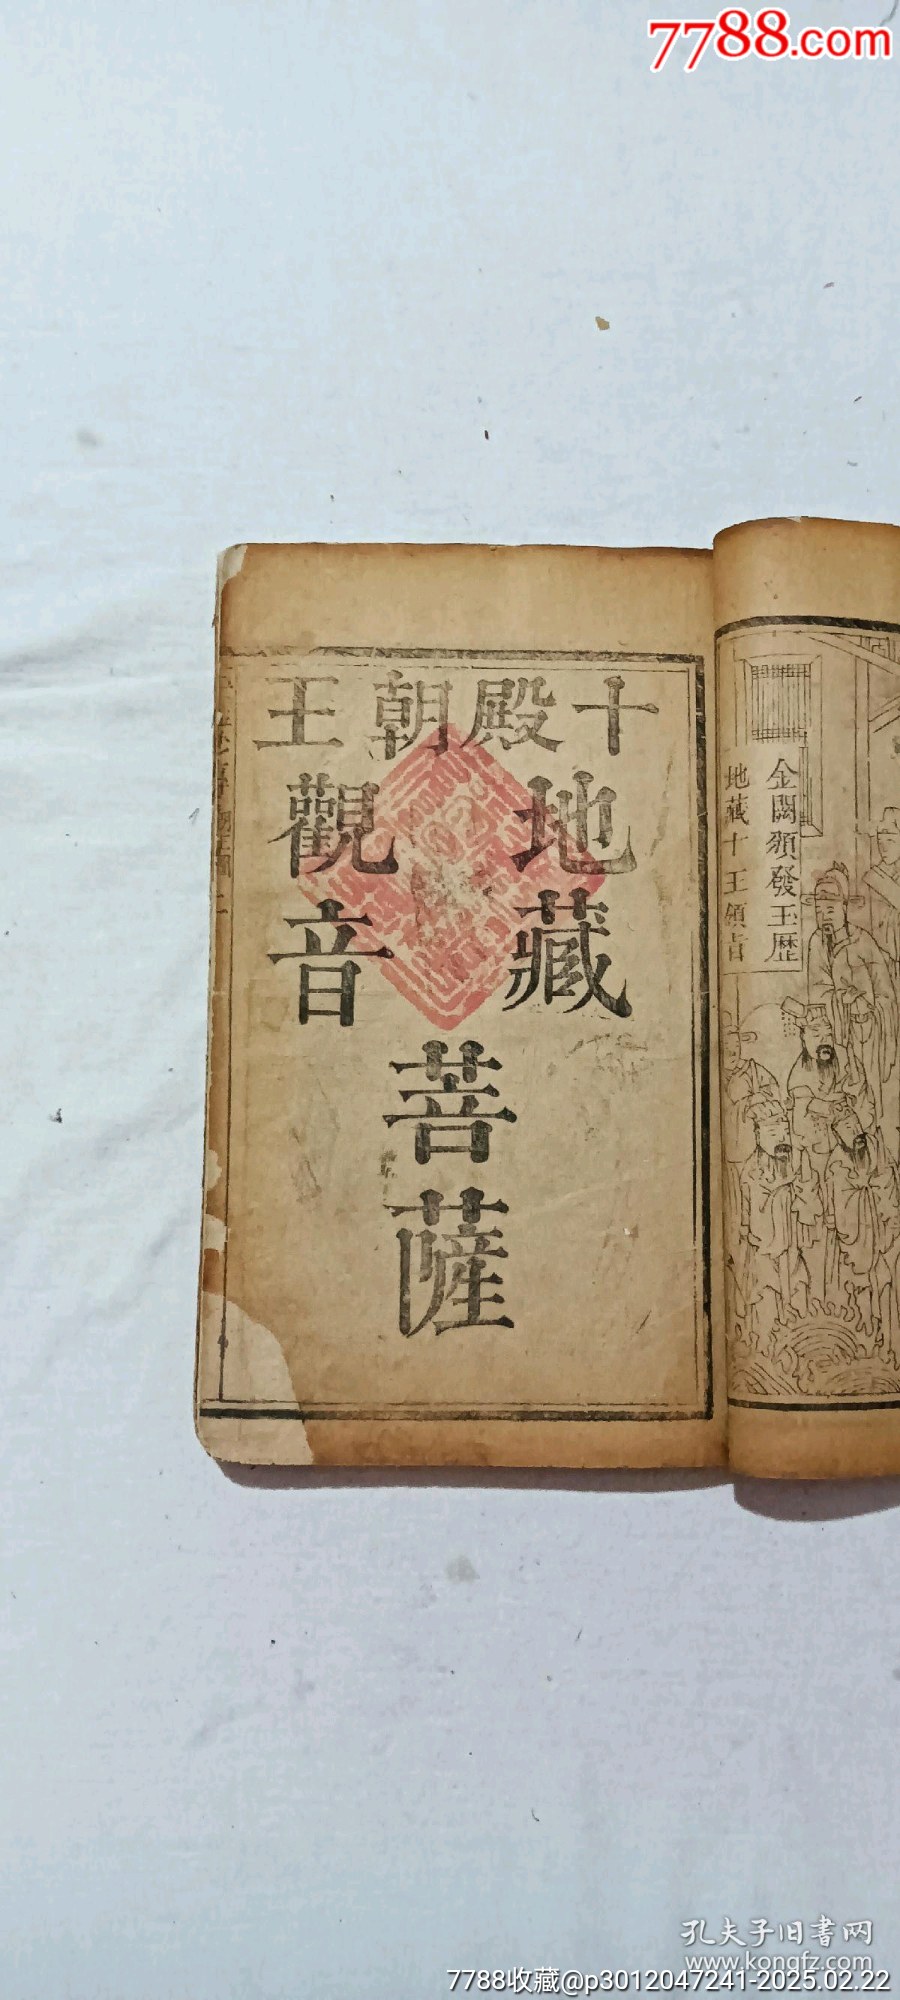 7788.com
金闕頒發玉歷
地藏十王領旨
十殿朝王
地藏
觀音
菩薩
孔夫子旧书网
www.kongfz.com
7788收藏@p3012047241-2025.02.22